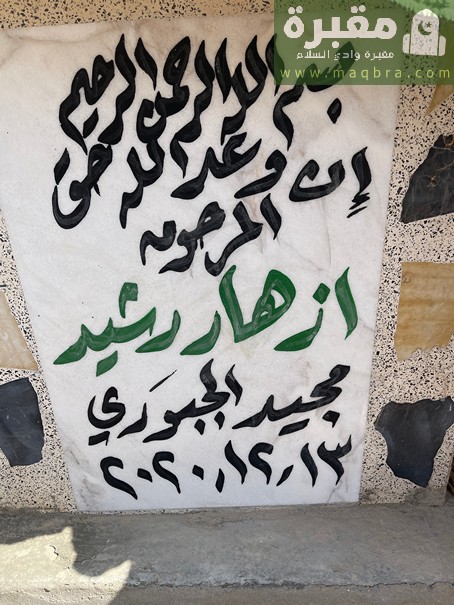 مقبرة
مقبرة وادي السلام
www.maqbra.com
بسم الله الرحمن الرحيم
إن وعد الله حق
المرحومه
ازهار رشيد
مجيد الجبوري
٢٠٢٠،١٢،١٣